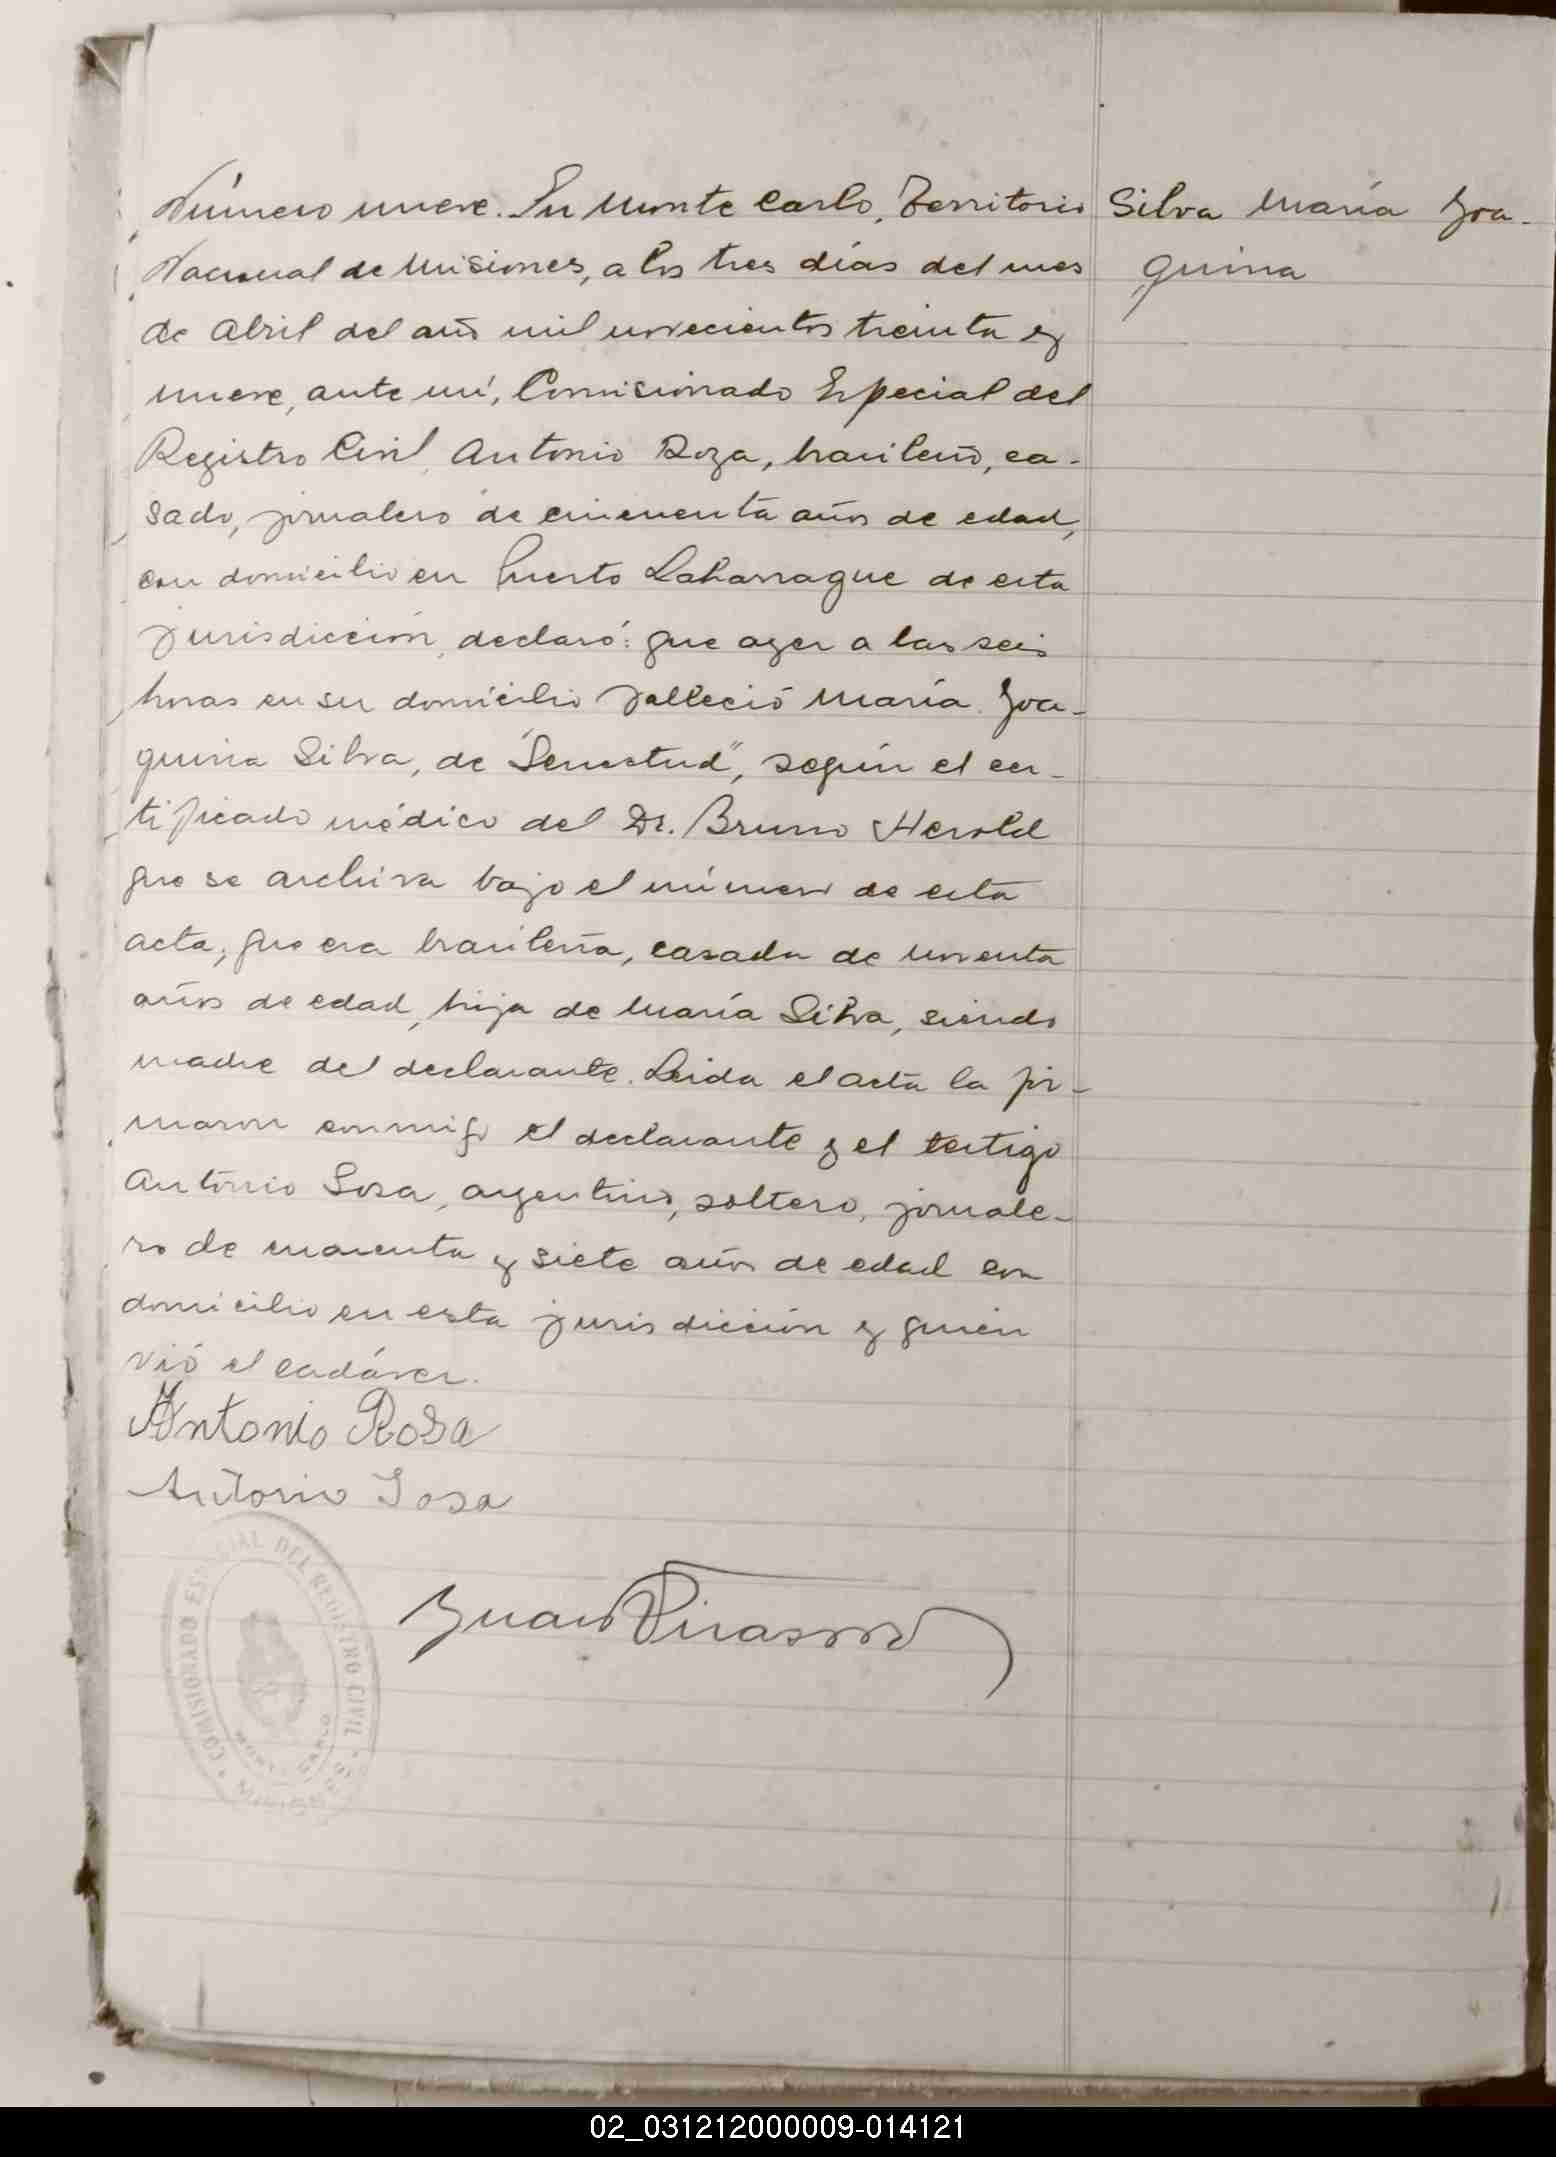 Número nueve. En Monte Carlo, Territorio
Nacional de Misiones, a los tres días del mes
de Abril del año mil novecientos treinta y
nueve, ante mí, Comisionado Especial del
Registro Civil, Antonio Roza, brasileño, ca-
sado, jornalero de cincuenta años de edad,
con domicilio en Puerto Laharrague de esta
jurisdicción, declaró: que ayer a las seis
horas en su domicilio falleció María Joa-
quina Silva, de "Senectud", según el cer-
tificado médico del Dr. Bruno Herold
que se archiva bajo el número de esta
acta; que era brasileña, casada de noventa
años de edad, hija de María Silva, siendo
madre del declarante. Leida el acta la fir-
maron conmigo el declarante y el testigo
Antonio Sosa, argentino, soltero, jornale-
ro de cuarenta y siete años de edad con
domicilio en esta jurisdicción y quien
vió el cadáver.
Antonio Rosa
Antonio Sosa
Juan
COMISIONADO ESPECIAL DEL REGISTRO CIVIL
MONTE CARLO
MISIONES
Silva María Joa-
quina
02_031212000009-014121